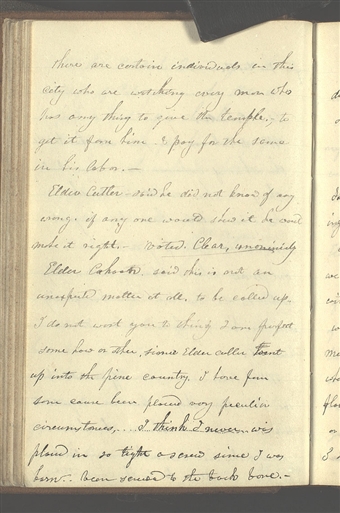 there are certain individuals in this
city who are watching every man who
has any thing to give the temple, to
get it from him & pay for the same
in his labor.—
Elder Cutler said he did not know of any
wrong. if any one would show it he would
make it right.— voted. Clear, unanimously
Elder Cahoon. said this is not an
unexpected matter at all, to be called up.
I do not want you to think I am perfect
some how or other, since Elder Cutler went
up into the pine country, I have from
some cause been placed very peculiar
circumstances,... I think I never was
placed in so tight a screw since I was
born.. been screwed to the back bone.—